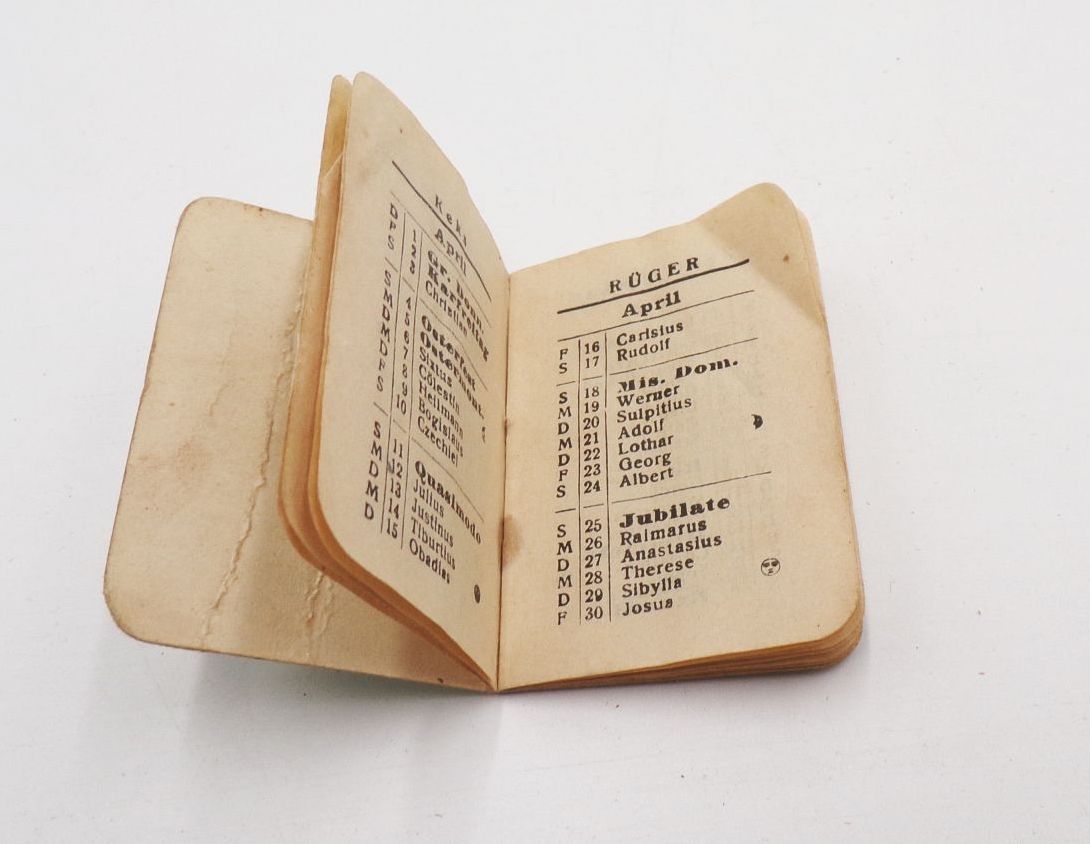 Keks
April
D 1 Gr. Donn.
F 2 Karfreitag
S 3 Christianstag
S 4 Osterfest
M 5 Ostermont.
D 6 Sixtus
M 7 Cölestin
D 8 Heilmann
F 9 Bogislaus
S 10 Czechiel
S 11 Quasimodo
M 12 Julius
D 13 Justinus
M 14 Tiburtius
D 15 Obadias
RÜGER
April
F 16 Carisius
S 17 Rudolf
S 18 Mis. Dom.
M 19 Werner
D 20 Sulpitius
M 21 Adolf
D 22 Lothar
F 23 Georg
S 24 Albert
S 25 Jubilate
M 26 Raimarus
D 27 Anastasius
M 28 Therese
D 29 Sibylla
F 30 Josua